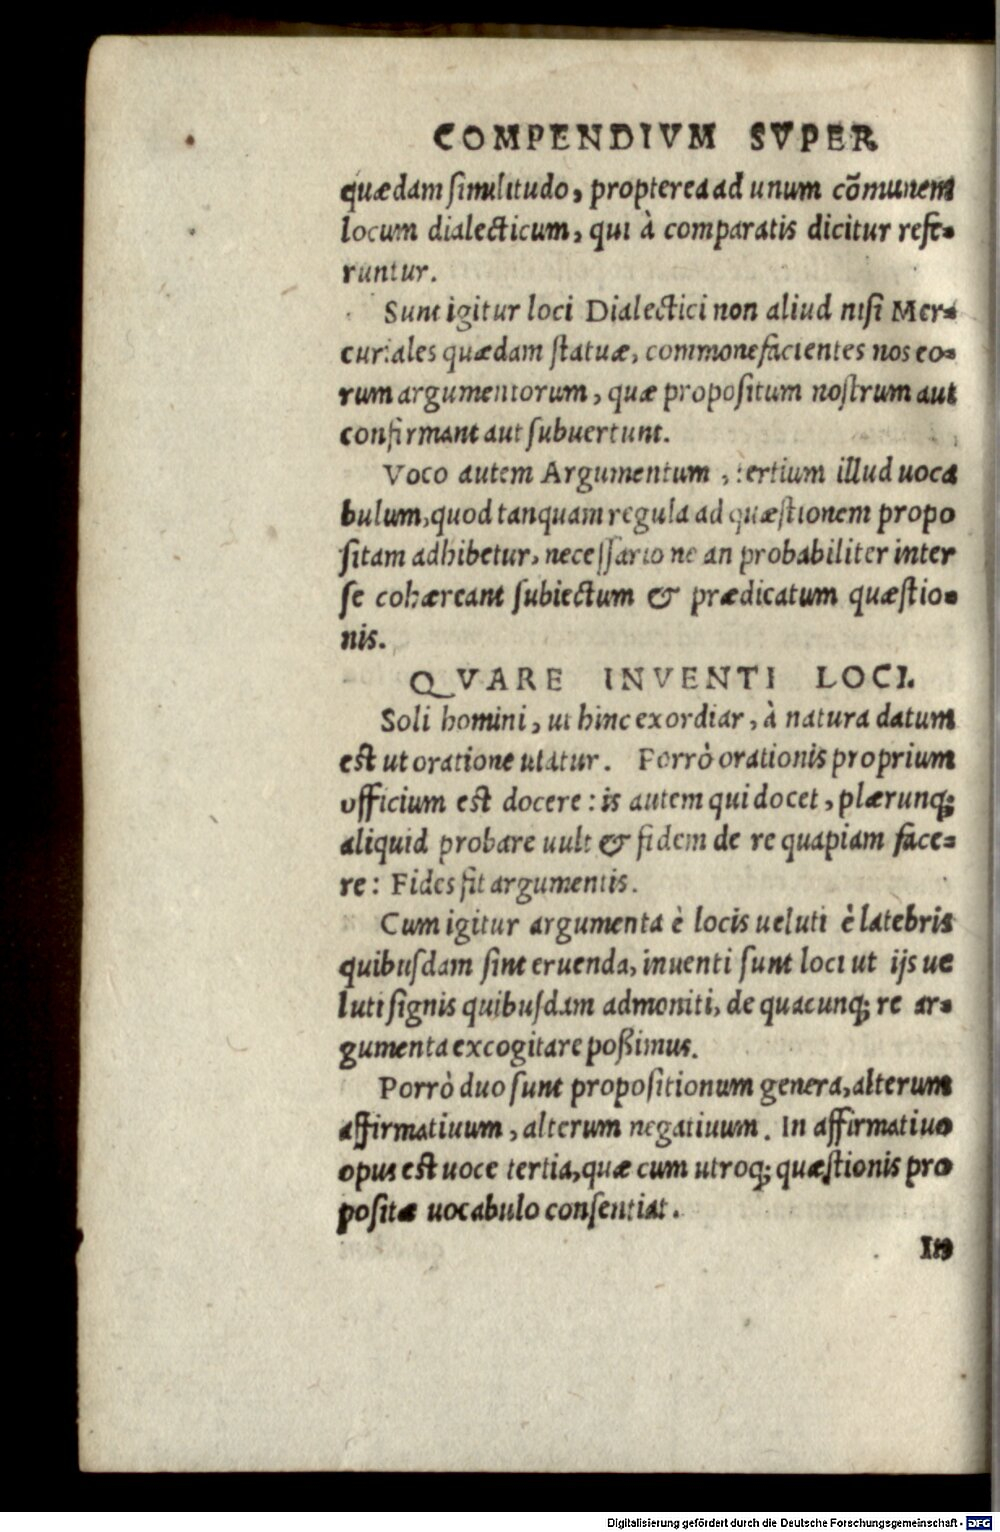 COMPENDIVM SVPER
quædam similitudo, propterea ad unum cõmunem
locum dialecticum, qui à comparatis dicitur refe-
runtur.
Sunt igitur loci Dialectici non aliud nisi Mer-
curiales quædam statuæ, commonefacientes nos eo-
rum argumentorum, quæ propositum nostrum aut
confirmant aut subuertunt.
Voco autem Argumentum, tertium illud uoca
bulum, quod tanquam regula ad quæstionem propo
sitam adhibetur, necessario ne an probabiliter inter
se cohæreant subiectum & prædicatum quæstio-
nis.
QVARE INVENTI LOCI.
Soli homini, ut hinc exordiar, à natura datum
est ut oratione utatur. Porrò orationis proprium
officium est docere: is autem qui docet, plærunq;
aliquid probare uult & fidem de re quapiam face-
re: Fides fit argumentis.
Cum igitur argumenta è locis ueluti è latebris
quibusdam sint eruenda, inuenti sunt loci ut ijs ue
luti signis quibusdam admoniti, de quacunq; re ar-
gumenta excogitare poßimus.
Porrò duo sunt propositionum genera, alterum
affirmatiuum, alterum negatiuum. In affirmatiuo
opus est uoce tertia, quæ cum utroq; quæstionis pro
positæ uocabulo consentiat.
In
Digitalisierung gefördert durch die Deutsche Forschungsgemeinschaft - DFG